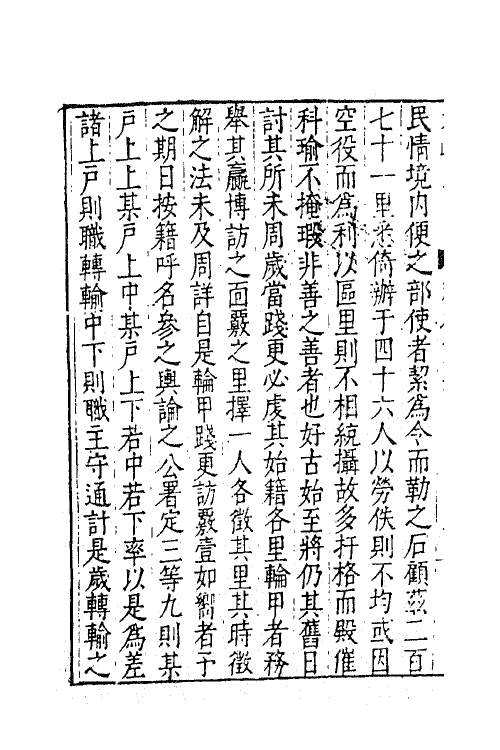 民情境内便之部使者絜爲令而勒之石顧茲二百
七十一里悉倚辦于四十六人以勞佚則不均或因
空役而爲利以區里則不相統攝故多扞格而殿催
科瑜不掩瑕非善之善者也好古始至將仍其舊日
討其所未周歲當踐更必虔其始籍各里輪甲者務
舉其羸博訪之面覈之里擇一人各徵其里其時徵
解之法未及周詳自是輪甲踐更訪覈壹如嚮者予
之期日按籍呼名參之輿論之公署定三等九則某
戶上上某戶上中某戶上下若中若下率以是爲差
諸上戶則職轉輸中下則職主守通計是歲轉輸之